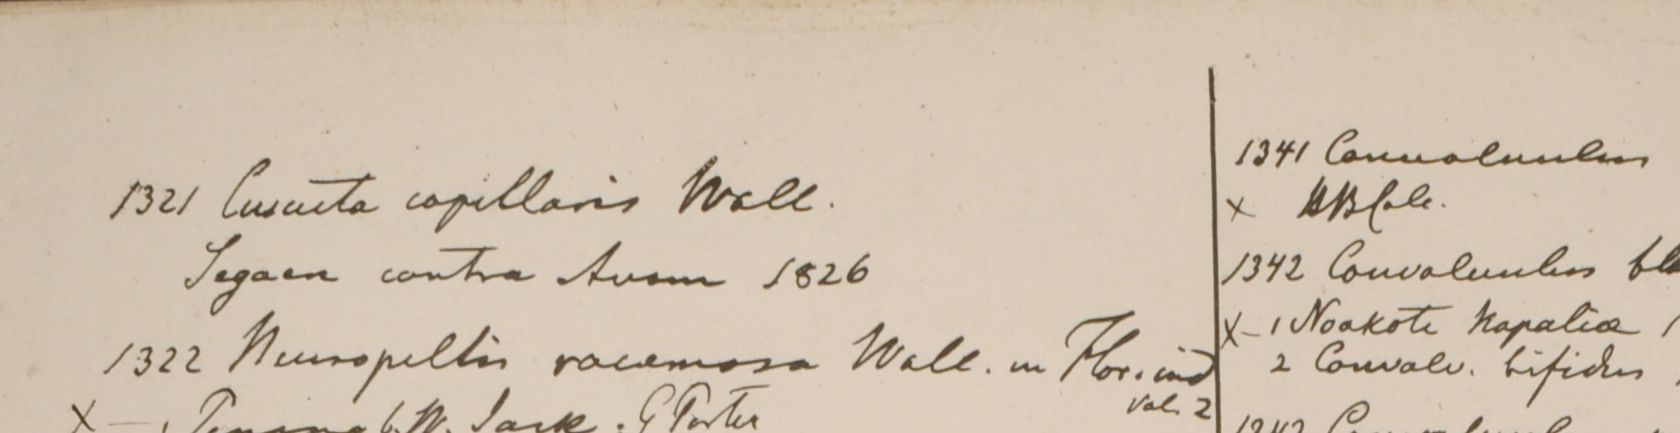 1321 Cuscuta capillaris Wall.
Segaen contra Avam 1826
1322 Neuropeltis racemosa Wall. in Flor. ind
vol. 2
X — 1 Penang W. Jack. G Porter
1341 Convolvulus
x HBCalc.
1342 Convolvulus
X – 1 Noakote Napaliæ
2 Convolv. bifidus